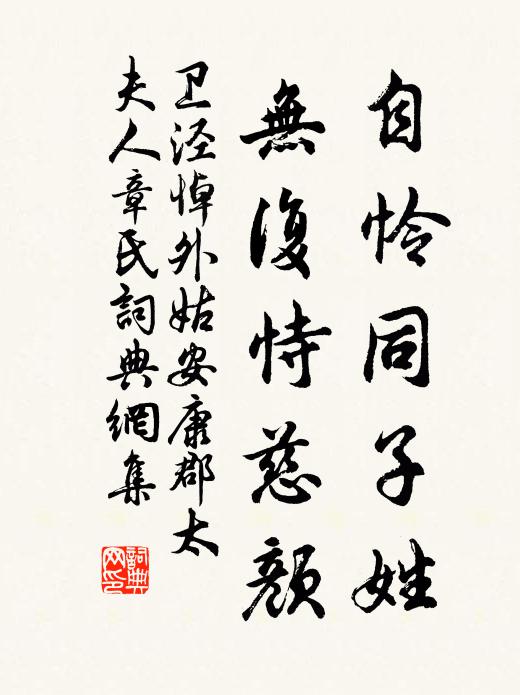 自怜同子姓
無復恃慈顔
卫泾悼外姑安康郡太
夫人章氏詞典網集
詞典
网印